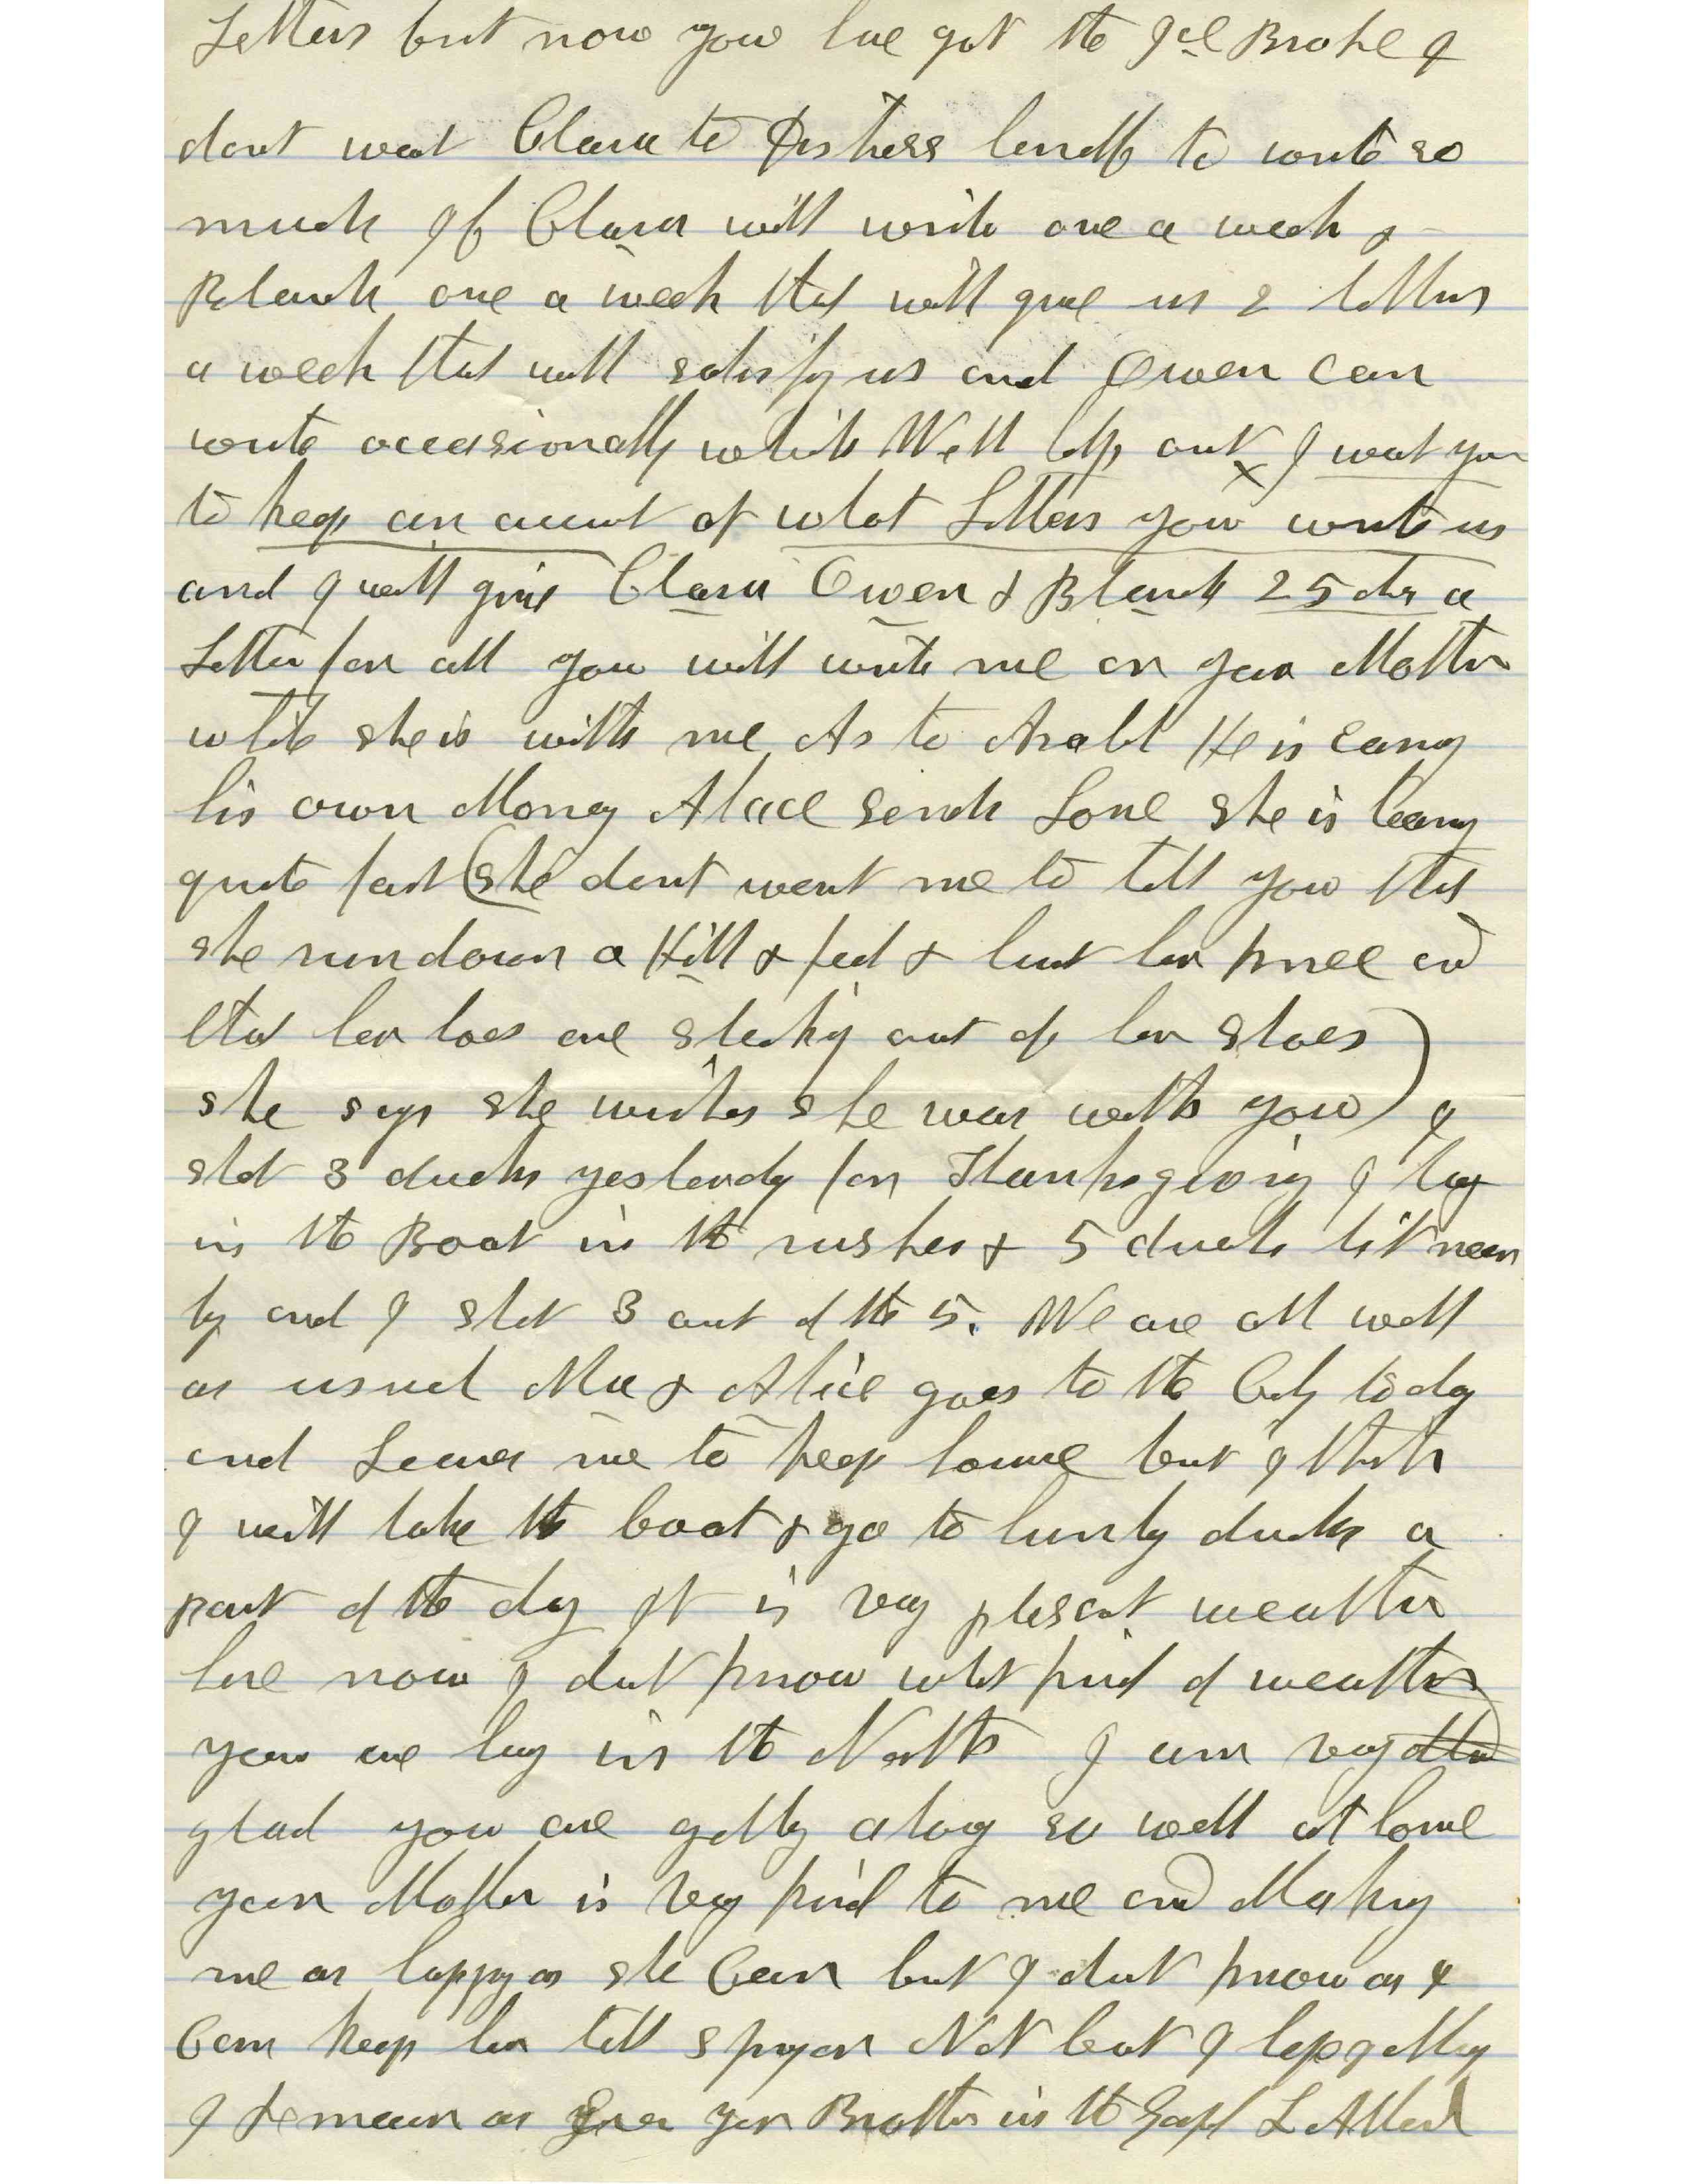 Letters but now you have got the Ice Broke I
dont want Clara to distress herself to write so
much If Clara will write one a week &
Blanch one a week that will give us 2 letters
a week that will satisfy us and Owen can
write occasionally while Will helps out x I want you
to keep an account of what Letters you write us
and I will give Clara Owen & Blanch 25 cts a
Letter for all you will write me or your Mother
while she is with me As to He is earng
his own Money Alice sends Love she is
quite fast (She dont want me to tell you that
she run down a Hill & fell & hurt her knee and
that her toes are stickig out of her shoes
she says she wishes she was with you) I
shot 3 ducks yesterdy for Thanksgiving I lay
in the Boat in the rushes & 5 ducks lit near
by and I shot 3 out of the 5. We are all well
as usual Ma & Alice goes to the City to day
and Leaves me to keep house but I think
I will take the boat & go to huntg ducks a
part of the day It is very plesant weather
here now I dont know what kind of weather
you are havg in the North I am very
glad you are gettg along so well at home
your Mother is very kind to me and Making
me as happy as she Can but I dont know as I
Can keep her till spring or Not but I hope
I Remain as Ever your Brother in the Gospl L A Allard